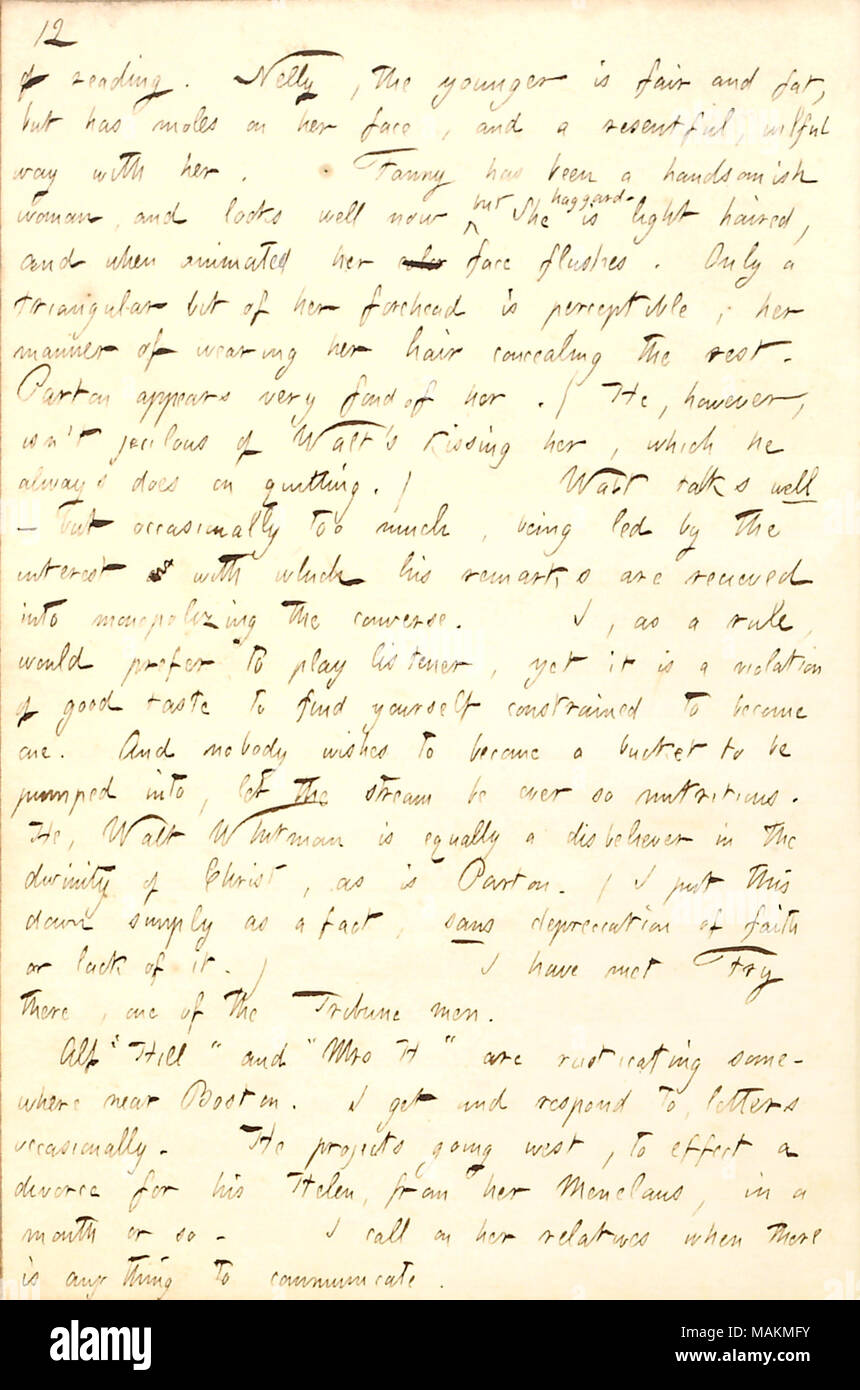 12
of reading. Nelly, the younger is fair and fat,
but has moles on her face, and a resentful, wilful
way with her. Fanny has been a handsomish
woman, and looks well now but haggard. She is light haired,
and when animated her color face flushes. Only a
triangular bit of her forehead is perceptible; her
manner of wearing her hair concealing the rest.
Parton appears very fond of her. ( He, however,
isn't jealous of Walt's kissing her, which he
always does on quitting. ) Walt talks well
— but occasionally too much, being led by the
interest with which his remarks are recieved
into monopolizing the converse. I, as a rule,
would prefer to play listener, yet it is a violation
of good taste to find yourself constrained to become
one. And nobody wishes to become a bucket to be
pumped into, let the stream be ever so nutritious.
He, Walt Whitman is equally a disbeliever in the
divinity of Christ, as is Parton. ( I put this
down simply as a fact, sans depreciation of faith
or lack of it. ) I have met Fry
there, one of the Tribune men.
Alf "Hill" and "Mrs H" are rusticating some-
where near Boston. I get and respond to letters
occasionally. He projects going west, to effect a
divorce for his Helen, from her Menelaus, in a
month or so. I call on her relatives when there
is any thing to communicate.
alamy
Image ID: MAKMFY
www.alamy.com